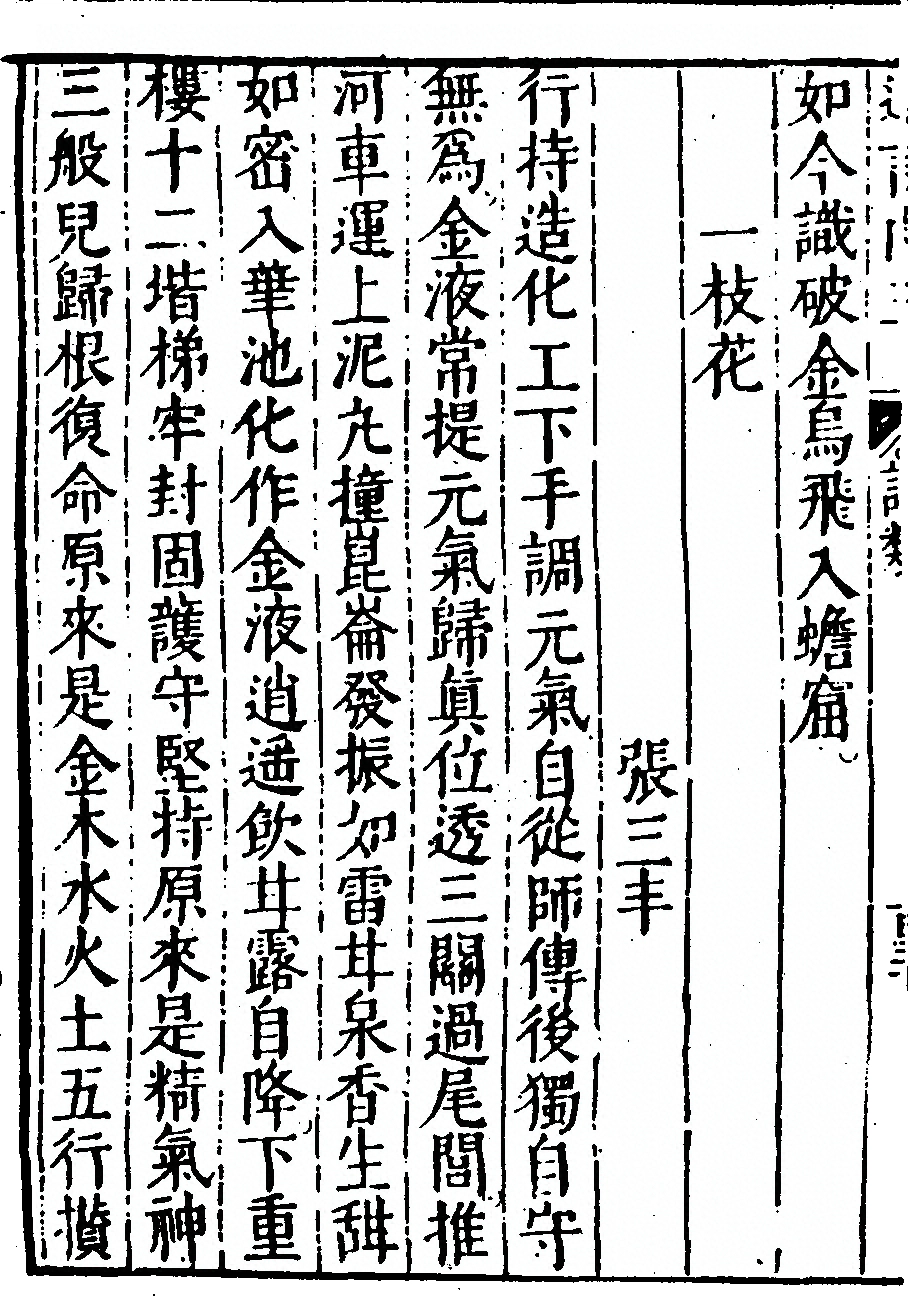 如今識破金烏飛入蟾窟
一枝花
張三丰
行持造化工下手調元氣自從師傳後獨自守
無為金液常提元氣歸眞位透三關過尾閭推
河車運上泥丸撞崑崙發振如雷甘泉香生甜
如密入華池化作金液逍遥飲甘露自降下重
樓十二堦梯牢封固護守堅持原來是精氣神
三般兒歸根復命原來是金木水火土五行攢